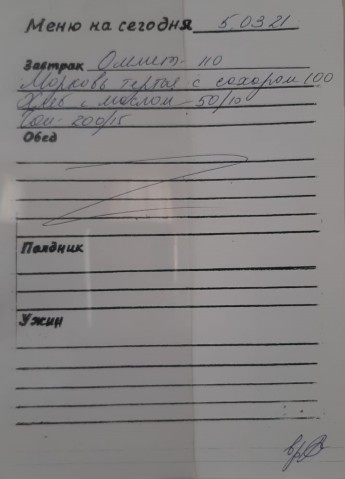 Меню на сегодня 5.03.21
Завтрак Омлет- 110
Морковь тертая с сахаром 100
Хлеб с маслом - 50/10
Чай - 200/15
Обед
Полдник
Ужин